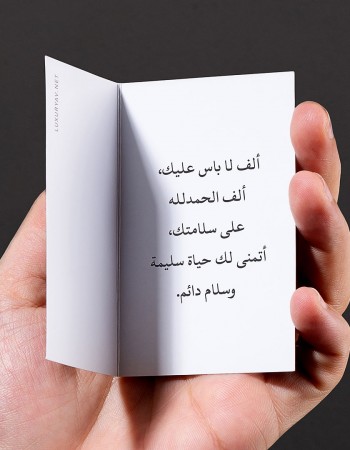 ألف لا باس عليك،
ألف الحمدلله
على سلامتك،
أتمنى لك حياة سليمة
وسلام دائم.